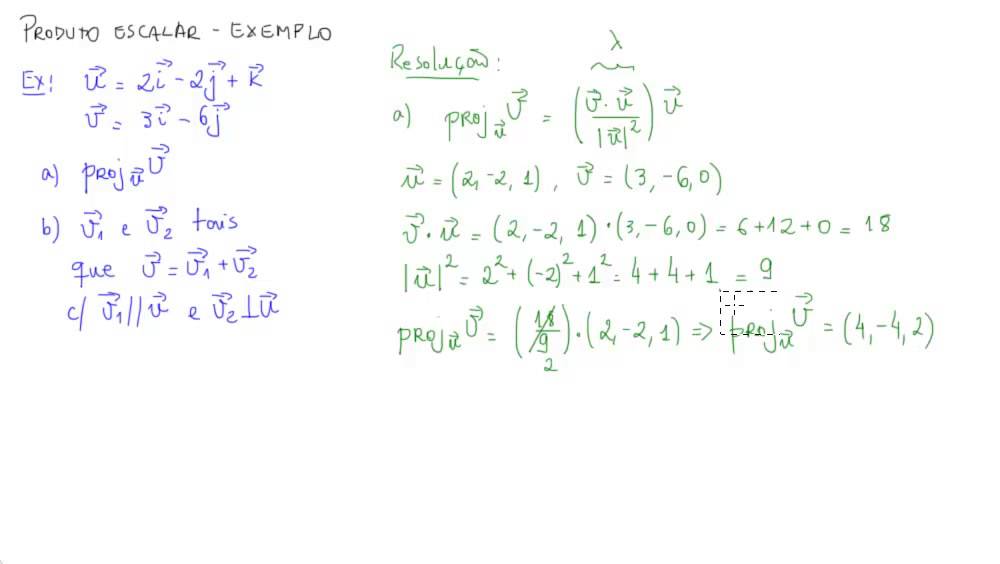 PRODUTO ESCALAR - EXEMPLO
Ex: u⃗ = 2i⃗ - 2j⃗ + k⃗
v⃗ = 3i⃗ - 6j⃗
a) proj_u⃗ v⃗
b) v⃗₁ e v⃗₂ tais
que v⃗ = v⃗₁ + v⃗₂
c/ v⃗₁ // u⃗ e v⃗₂ ⊥ u⃗
Resolução:
λ
a) proj_u⃗ v⃗ = (v⃗ · u⃗ / |u⃗|²) u⃗
u⃗ = (2, -2, 1) , v⃗ = (3, -6, 0)
v⃗ · u⃗ = (2, -2, 1) · (3, -6, 0) = 6 + 12 + 0 = 18
|u⃗|² = 2² + (-2)² + 1² = 4 + 4 + 1 = 9
proj_u⃗ v⃗ = (18/9) · (2, -2, 1) => proj_u⃗ v⃗ = (4, -4, 2)
2